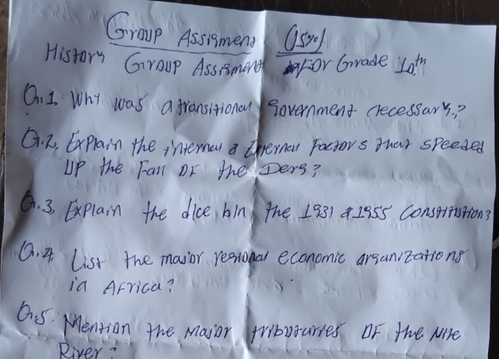 Group Assigment (15%)
History Group Assigment For Grade 10th
Q.1, Why was a transitional Government necessary?
Q.2, Explain the internal & External Factors that speeded
UP the Fall OF the Derg?
Q.3, Explain the d/ce b/n the 1931 & 1955 Constitutions
Q.4 List the major regional economic organizations
in Africa?
Q.5. Mention the Major tributarries OF the Nile
River?